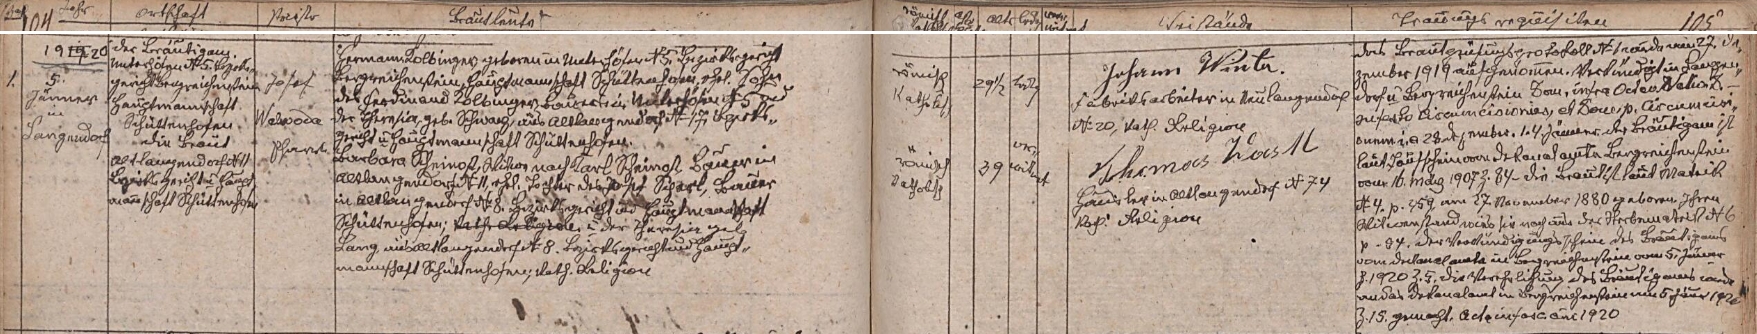 104 Jahr Ortschaft Priester Brautleute
1919/20
1.
5.
Jänner
in
Langendorf
der Bräutigam
Unterhöfen N 5 Bezirks-
gericht Bergreichenstein
Hauptmannschaft
Schüttenhofen.
die Braut
Altlangendorf N 11
Bezirksgericht u Haupt-
mannschaft Schüttenhofen
Josef
Watzoda
Pfarrer
Hermann Zolbinger, geboren in Unterhöfen N 5, Bezirksgericht
Bergreichenstein, Hauptmannschaft Schüttenhofen, ehel. Sohn
des Ferdinand Zolbinger, Bauers in Unterhöfen N 5 und
der Theresia, geb. Schwarz, aus Altlangendorf N 17, Bezirks-
gericht u Hauptmannschaft Schüttenhofen.
Barbara Witwe nach Karl Bauer in
Altlangendorf N 11, ehel. Tochter des Josef Bauer
in Altlangendorf N 8, Bezirksgericht und Hauptmannschaft
Schüttenhofen; kath. Religion u der Theresia geb.
Lang aus Altlangendorf N 8. Bezirksgericht und Haupt-
mannschaft Schüttenhofen; kath. Religion
römisch
katholisch
29 1/2 ledig
römisch
katholisch
39 verwitwet
Beistände
Johann Winter.
Fabriksarbeiter in Neulangendorf
N. 20, kath. Religion
Thomas
Häusler in Altlangendorf N 74
kath. Religion
Trauungs requisiten 105
Das Brautprüfungsprotokoll N 1 wurde am 27. De-
zember 1919 aufgenommen. Verkündigt in Langen-
dorf u Bergreichenstein Dom. infra Octav. Nativ.
in festo Circumcisionis, et Dom. p. Circumcis-
onem i.e. 28 Dezember, 1. 4. Jänner. der Bräutigam ist
laut Taufschein vom Dekanalamte Bergreichenstein
vom 16. März 1907 Z. 84 - die Braut ist laut Matrik
N 4. p. 459 am 27. November 1880 geboren. Ihren
Witwenstand wies sie nach aus der Sterbematrik N 6
p. 84. der Verkündigungsschein des Bräutigams
vom Dekanalamte in Bergreichenstein vom 5. Jänner
1920 Z. 5. die Verehelichung des Bräutigams wurde
an das Dekanalamt in Bergreichenstein am 5 Jänner 1920
Z. 15. gemacht. Acta in fasc. anni 1920